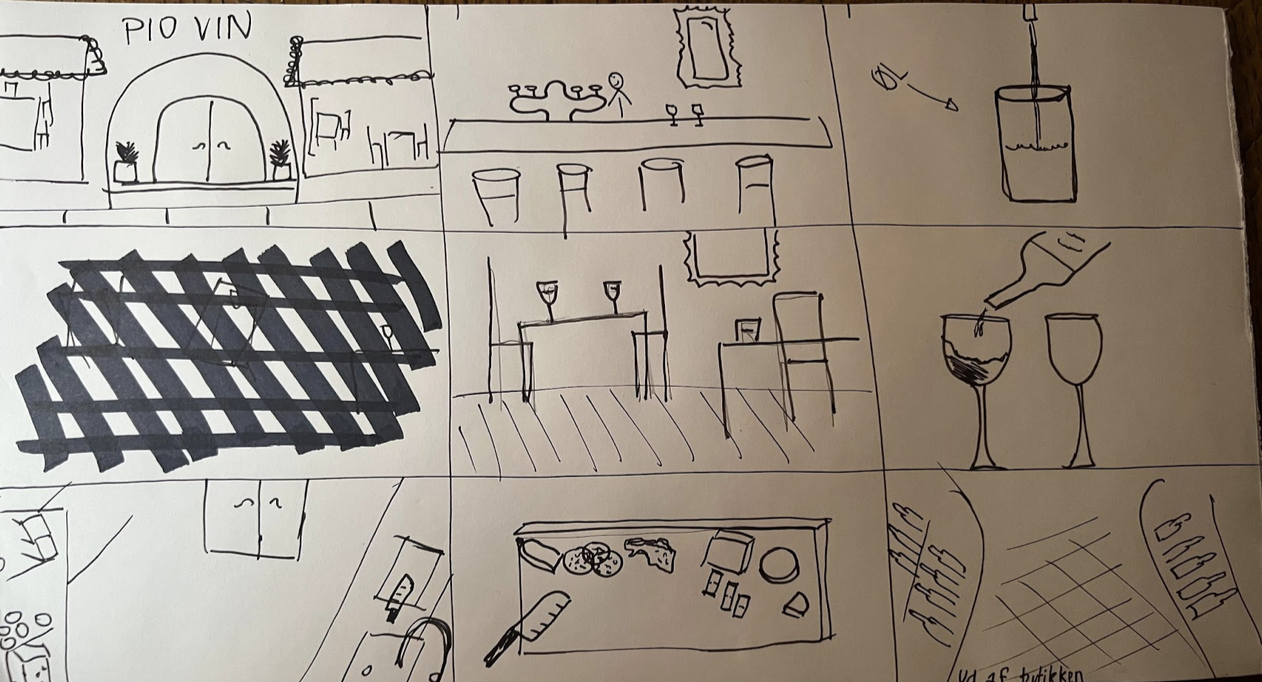 PIO VIN
ØL
Ud af butikken